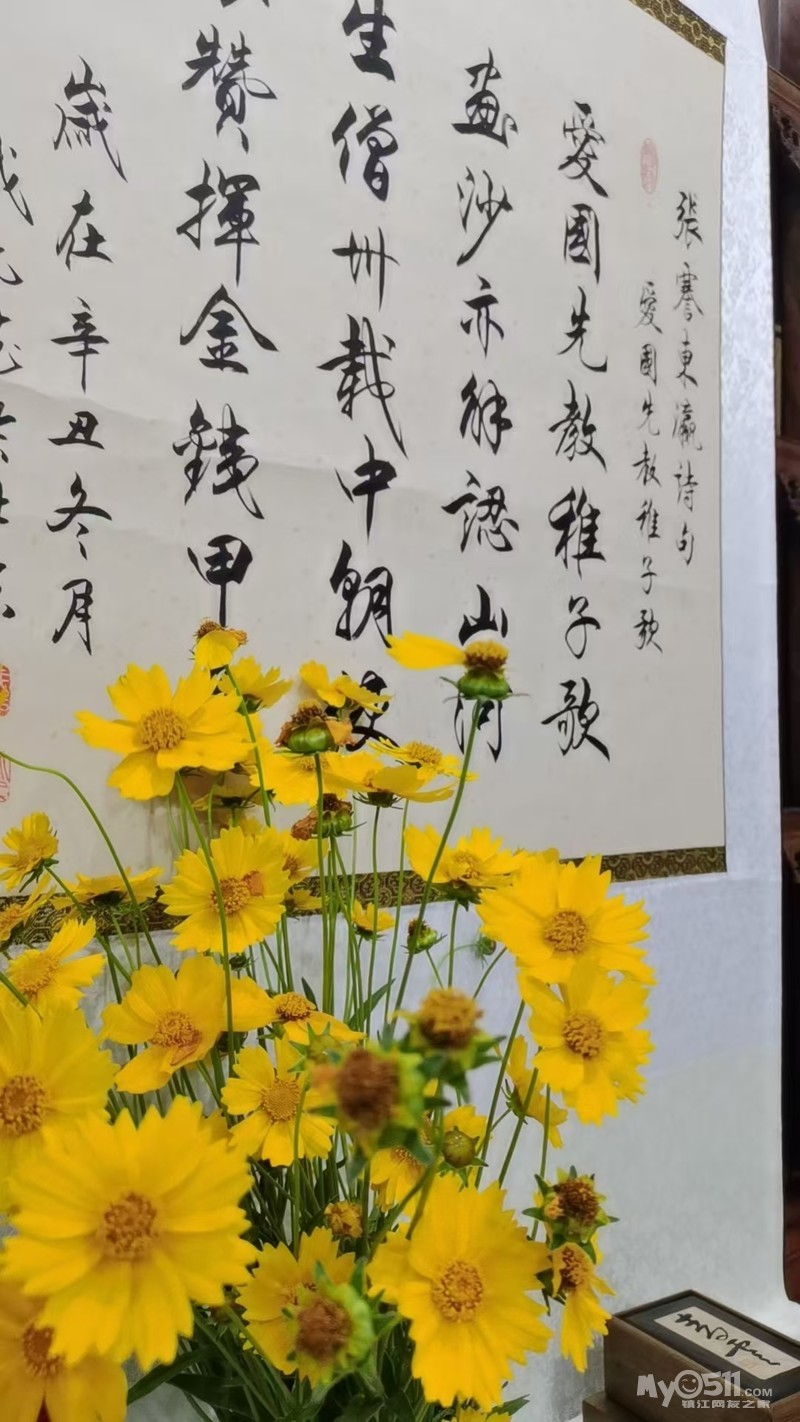 張謇東瀛詩句
愛國先教稚子歌
愛國先教稚子歌
畫沙亦解認山河
生僧卅載中朝
贊揮金鐵甲
歲在辛丑冬月
MY0511.COM
镇江网友之家